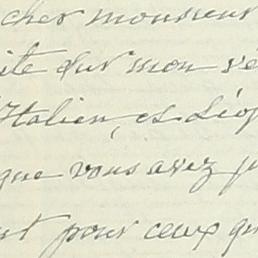 cher monsieur
ite sur mon vé
'Italien, et Léop
que vous avez p
nt pour ceux qu